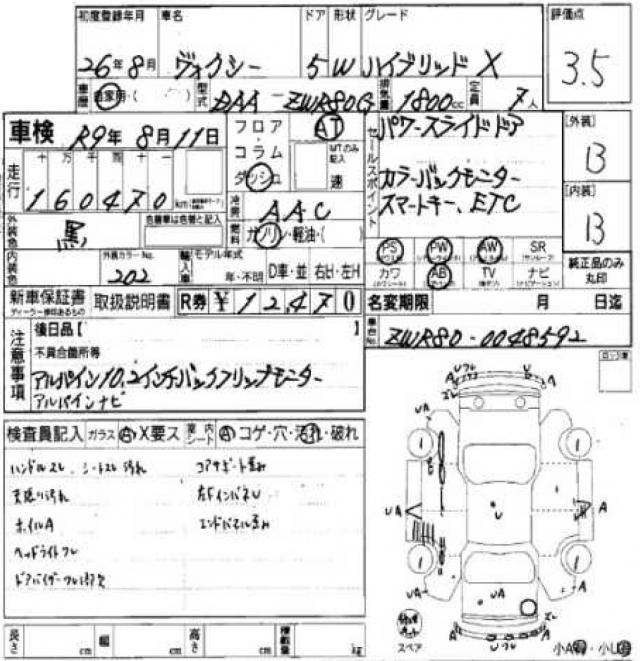 初度登録年月 車名 ドア 形状 グレード 評価点
26年8月 ヴォクシー 5 W ハイブリッド X 3.5
車歴 自家用・( ) 型式 DAA-ZWR80G 排気量 1800cc 定員 7人
車検 R9年8月11日 フロア AT
コラム MTのみ記入
ダッシュ 速
走行 十 万 千 百 十 一
160470 km
冷房 AAC
燃料 ガソリン・軽油・( )
セールスポイント パワースライドドア
カラーバックモニター
スマートキー、ETC
[外装] B
[内装] B
外装色 黒 色替車は色替と記入
内装色 外装カラーNo. 202
輸入車 モデル年式 年・不明 D車・並 右H・左H
PS PW AW SR
カワ AB TV ナビ
純正品のみ丸印
新車保証書 取扱説明書 R券 ¥12,470
ディーラー捺印あるもの
名変期限 月 日迄
車台No. ZWR80-0048592
注意事項 後日品【 】
不具合箇所等
アルパイン10.2インチバックフリップモニター
アルパインナビ
検査員記入 ガラス A・X要ス 室内 シート A コゲ・穴・汚れ・破れ
ハンドルスレ、シートスレ汚れ
天張り汚れ
ホイルA
ヘッドライトフレ
コアサポート歪み
左FインパネU
エンドパネル歪み
Uワレ
A
U
A
スレ
UA
A
1
1
UA
A
U
1
1
UA
A
UA
スレ
A
Uワレ
A
スペア
長さ cm 幅 cm 高さ cm 積載量 kg